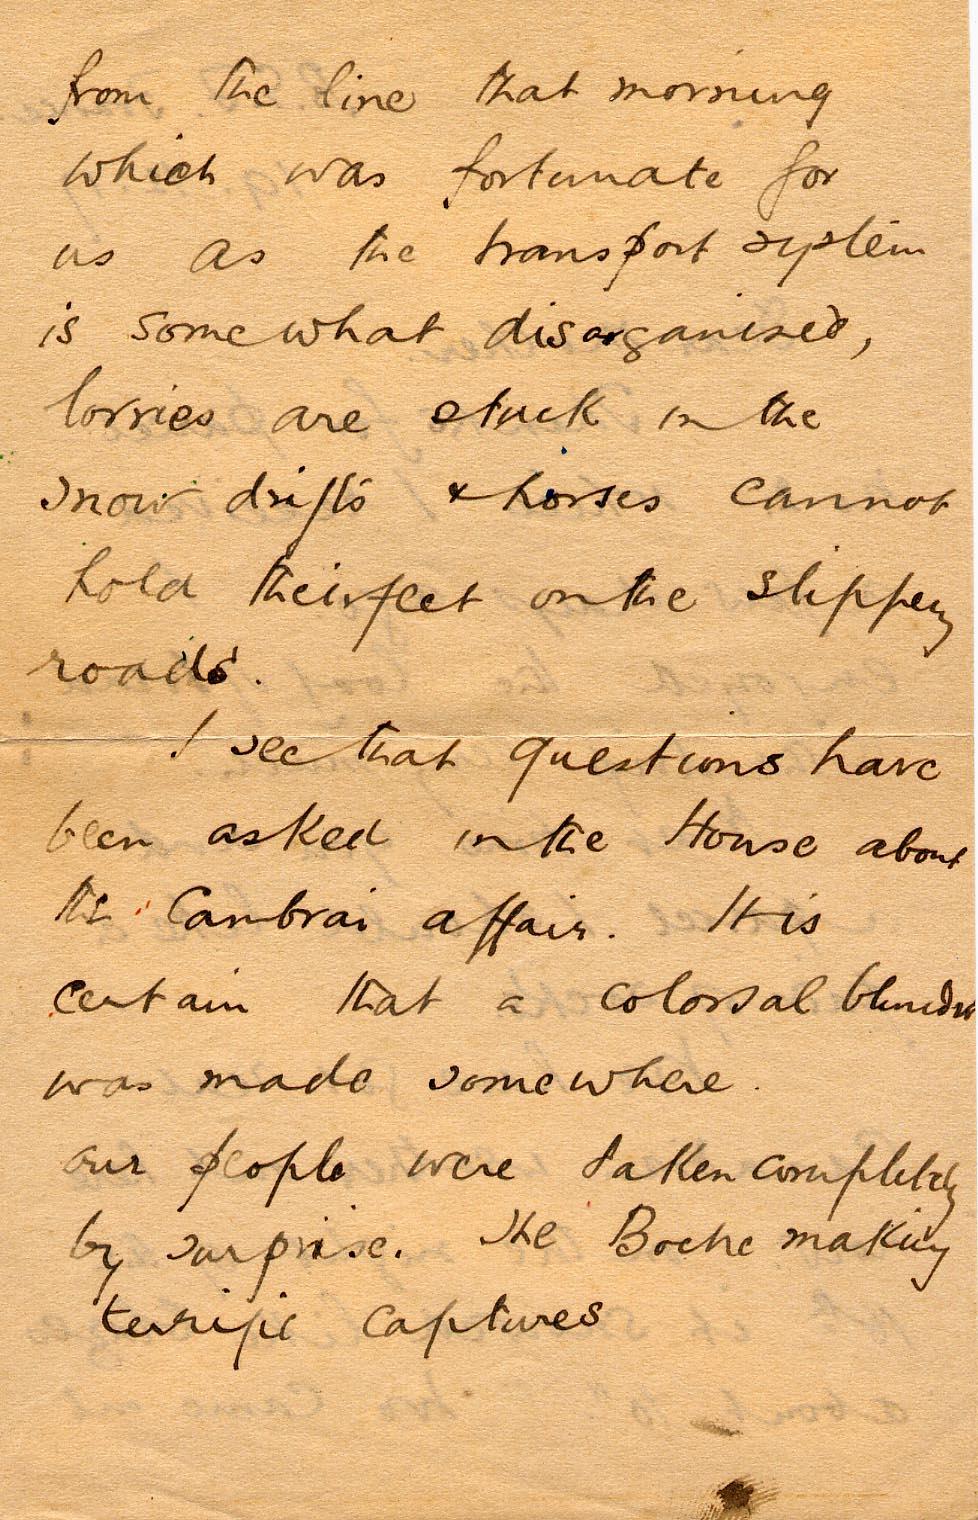 from the line that morning
which was fortunate for
us as the transport system
is somewhat disorganised,
lorries are stuck in the
snow drifts & horses cannot
hold their feet on the slippery
roads.
I see that questions have
been asked in the House about
the Cambrai affair. It is
certain that a colossal blunder
was made somewhere.
our people were taken completely
by surprise. The Boche making
terrific captures